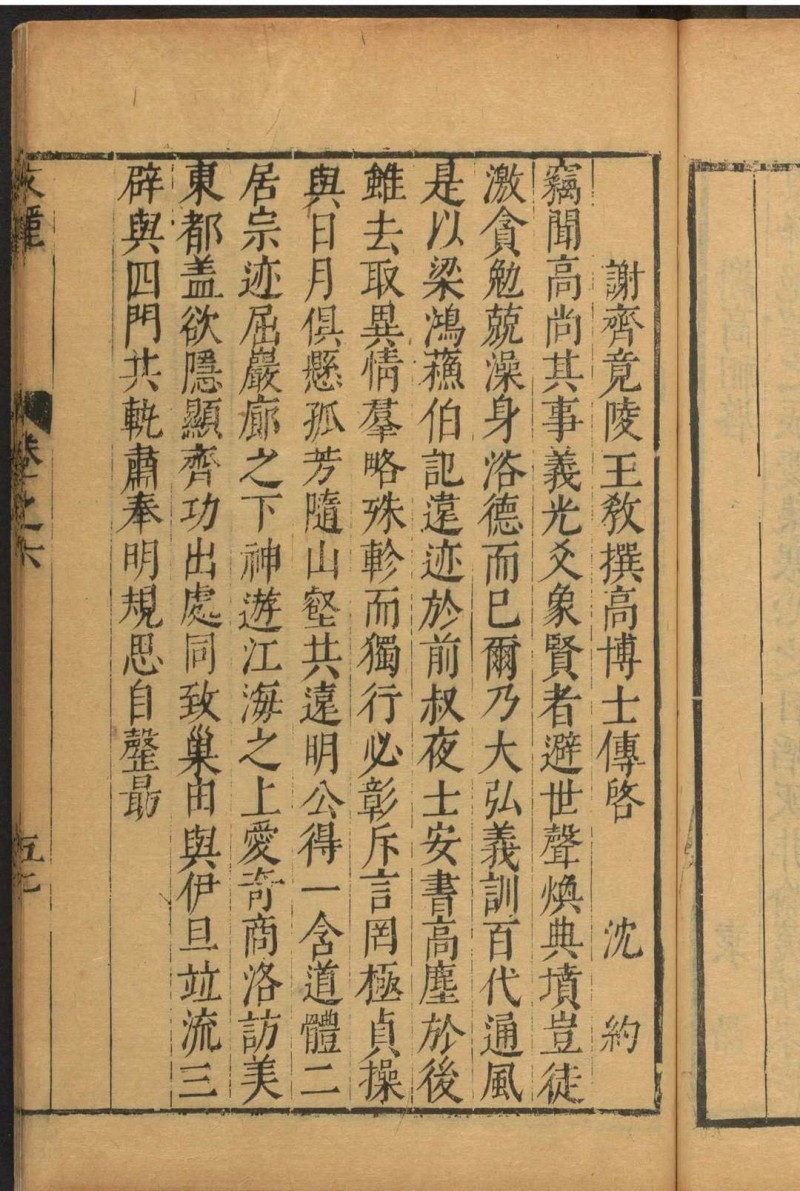 謝齊竟陵王敎撰高博士傳啓　沈約
竊聞高尚其事義光爻象賢者避世聲煥典墳豈徒
激貪勉兢澡身浴德而已爾乃大弘義訓百代通風
是以梁鴻蘓伯記遠迹於前叔夜士安書高塵於後
雖去取異情羣略殊軫而獨行必彰斥言罔極貞操
與日月俱懸孤芳隨山壑共遠明公得一含道體二
居宗迹屈巖廊之下神遊江海之上愛奇商洛訪美
東都盖欲隱顯齊功出處同致巢由與伊旦竝流三
辟與四門共軌肅奉明規思自罄最
卷之六